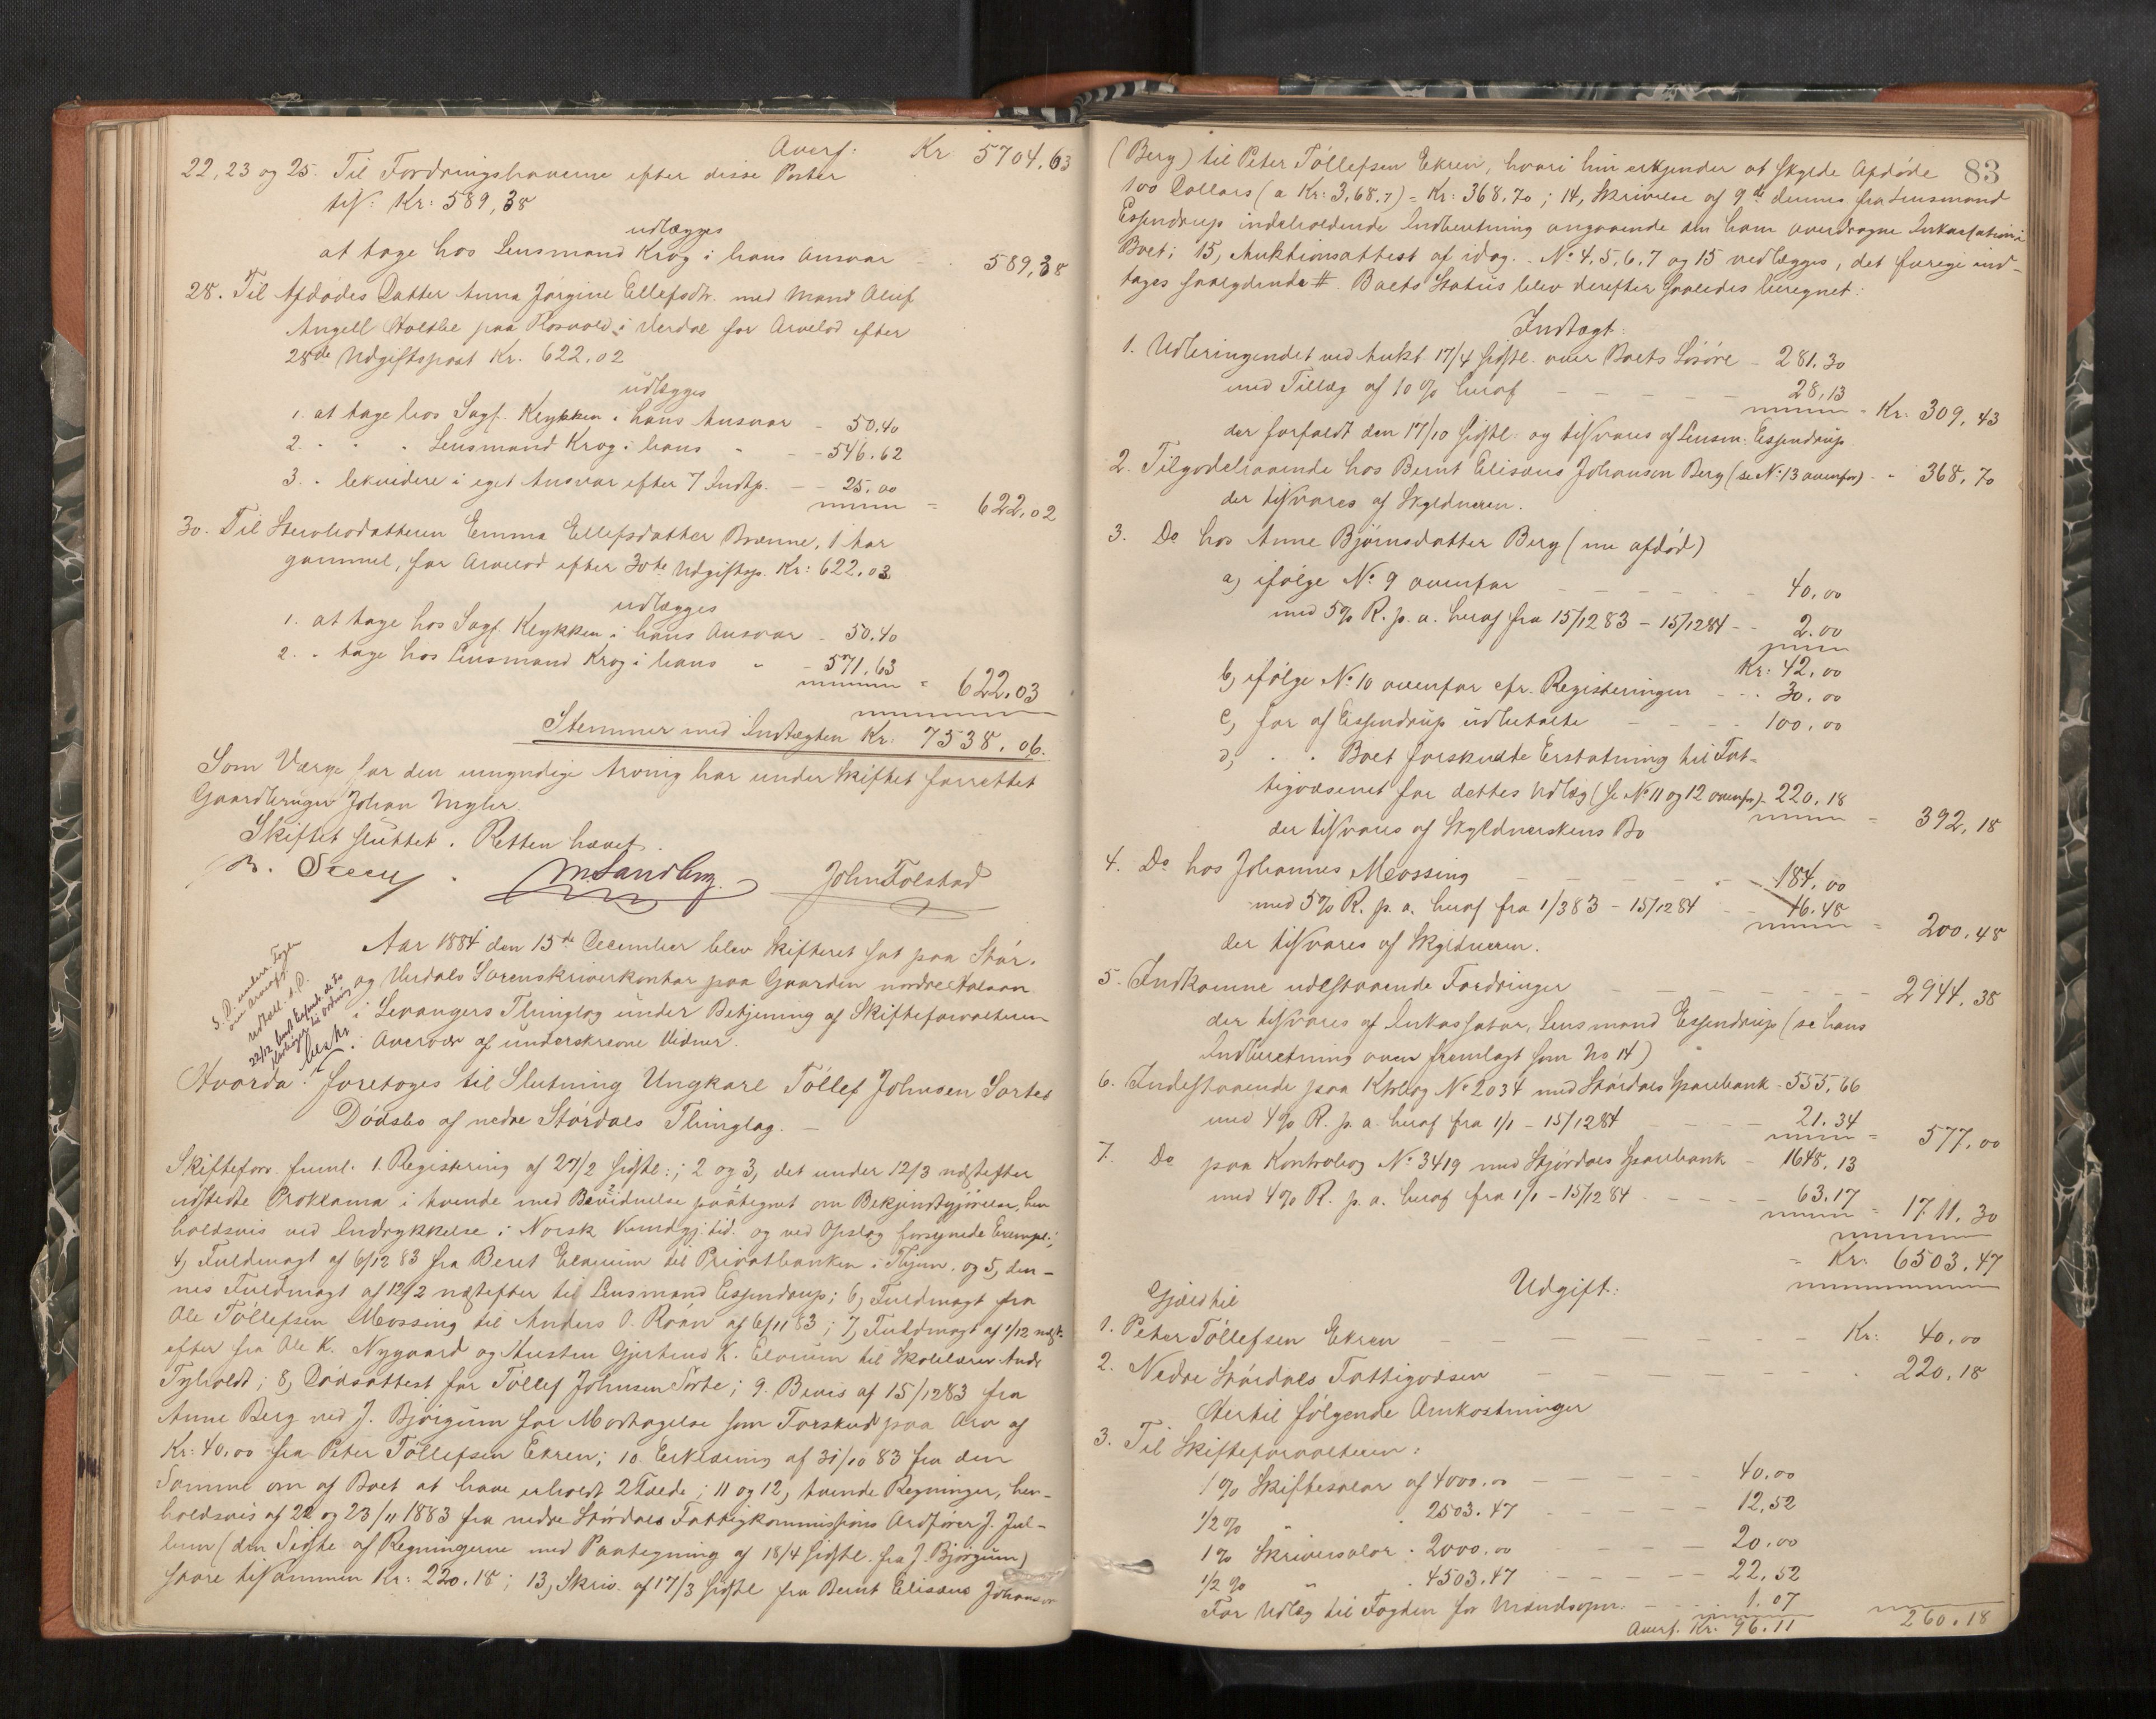 Overf. Kr 5704.63
22, 23 og 25. Til Fordringshaverne efter disse Poster
tils: Kr: 589,38
udlægges
at tage hos Lensmand Krog i hans Ansvar - 589,38
28. Til Afdødes Datter Anna Jørgine Ellefsdtr. med Mand Oluf
Angell Holthe paa Rosvold i Verdal for Arvelod efter
28de Udgiftspost Kr. 622.02
udlægges
1. at tage hos Sagf. Klykken i hans Ansvar - 50.40
2. " " " Lensmand Krog i hans " - - 546.62
3. " lekvidere i eget Ansvar efter 7 Indtp. - - 25.00
= 622.02
30. Til Stervbodatteren Emma Ellefsdatter Brænne, 1 Aar
gammel, for Arvelod efter 30te Udgiftsp. Kr: 622.03
udlægges
1. at tage hos Sagf. Klykken i hans Ansvar - 50.40
2. " tage hos Lensmand Krog i hans " - 571.63
= 622.03
Stemmer med Indtægten Kr. 7538.06.
Som Værge for den umyndige Arving har under Skiftet forrettet
Gaardbruger Johan Myhr.
Skiftet sluttet. Retten hævet.
M. Sandberg. John Tolstad
Aar 1884 den 15de December blev Skifteret sat paa Stør-
og Verdals Sorenskriverkontor paa Gaarden nordre Halsan
i Levangers Thinglag under Betjening af Skifteforvalteren
i Overvær af underskrevne Vidner.
S. D. underr. Fogden
om Arveafg.
Udtall. s. D.
beskr.
Hvorda: foretoges til Slutning Ungkarl Töllef Johnsen Sortes
Dødsbo af nedre Størdals Thinglag. -
Skifteforv. freml. 1. Registering af 27/2 sidstl:; 2 og 3, det under 12/3 næstefter
udstedte Proklama i tvende med Bevidnelse paategnet om Bekjendtgjørelse, hen-
holdsvis ved Indrykkelse i Norsk Kundgj.tid. og ved Opslag forsynede Exempl:;
4, Fuldmagt af 6/12 83 fra Beret Elvrum til Privatbanken i Thjem. og 5, den-
nes Fuldmagt af 12/2 næstefter til Lensmand Essendrup; 6, Fuldmagt fra
Ole Töllefsen Mossing til Anders O. Roån af 6/11 83; 7, Fuldmagt af 1/12 næst-
efter fra Ole K. Nygaard og Hustru Gjertrud K. Elvrum til Skolelærer Andr.
Tyholdt; 8, Dødsattest for Töllef Johnsen Sorte; 9. Bevis af 15/12 83 fra
Anne Berg ved J. Bjørgum for Modtagelse som Forskud paa Arv af
Kr: 40.00 fra Peter Töllefsen Ekren; 10. Erklæring af 31/10 83 fra den
Samme om af Boet at have erholdt 2 Faar; 11 og 12, tvende Regninger, hen-
holdsvis af 22 og 23/11 1883 fra nedre Størdals Fattigkommissions Ordfører J. Jul-
lum (den Sidste af Regningerne med Paategning af 18/4 sidstl. fra J. Bjørgum)
store tilsammen Kr: 220.18; 13, Skriv. af 17/3 sidstl fra Bernt Elisæus Johansen
83
(Berg) til Peter Töllefsen Ekren, hvori hin erkjender at skylde Afdøde
100 Dollars (a Kr: 3,68.7) = Kr: 368.70; 14, Skrivelse af 9de dennes fra Lensmand
Essendrup indeholdende Indberetning angaaende den ham overdragne Inkassation i
Boet; 15, Auktionsattest af idag. - No 4. 5. 6. 7 og 15 vedlægges, det øvrige ind-
tages saalydende #. Boets Status blev derefter saaledes beregnet:
Indtægt:
1. Udbringendet ved Aukt 17/4 sidstl. over Boets Løsøre - 281.30
med Tillæg af 10 % heraf - - - - - 28,13
= Kr: 309,43
der forfaldt den 17/10 sidstl. og tilsvares af Lensm: Essendrup
2. Tilgodehavende hos Bernt Elisæus Johansen Berg (se No 13 ovenfor) - - 368,70
der tilsvares af Skyldneren.
3. Do hos Anne Bjørnsdatter Berg (nu afdød)
a, ifølge No 9 ovenfor - - - - - 40.00
med 5% R. p. a. heraf fra 15/12 83 - 15/12 84 - - 2.00
Kr: 42.00
b, ifølge No 10 ovenfor cfr. Registeringen - - - 30.00
c, for af Essendrup udbetalte - - - - 100.00
d, " " Boet forskudte Erstatning til Fat-
tigvæsenet for dettes Udlæg (se No 11 og 12 ovenfor) - 220.18
= 392,18
der tilsvares af Skyldnerskens Bo
4. Do hos Johannes Mossing - - - - - 184.00
med 5% R. p. a. heraf fra 1/3 83 - 15/12 84 - - 16.48
= 200.48
der tilsvares af Skyldneren.
5. Indkomne udestaaende Fordringer - - - - - - 2944.38
der tilsvares af Inkassator, Lensmand Essendrup (se hans
Indberetning oven fremlagt som No 14)
6. Indestaaende paa Ktrbog No 2034 med Størdals Sparebank - 555.66
med 4% R. p. a. heraf fra 1/1 - 15/12 84 - - - - 21.34
= 577.00
7. Do paa Kontrabog No 3419 med Stjørdals Sparebank - 1648.13
med 4% R. p. a. heraf fra 1/1 - 15/12 84 - - - - 63.17
= 1711.30
= Kr: 6503.47
Udgift:
Gjæld til
1. Peter Töllefsen Ekren - - - - - - - Kr: 40.00
2. Nedre Størdals Fattigvæsen - - - - - - - 220.18
Hertil følgende Omkostninger
260.18
3. Til Skifteforvalteren:
1% Skiftesalær af 4000.00 - - - - - 40.00
1/2% " " 2503.47 - - - - - 12,52
1% Skriversalær " 2000.00 - - - - - 20.00
1/2% " " 4503.47 - - - - - 22,52
For Udlæg til Fogden for Mændsopn. - - - 1.07
Overf. Kr. 96.11